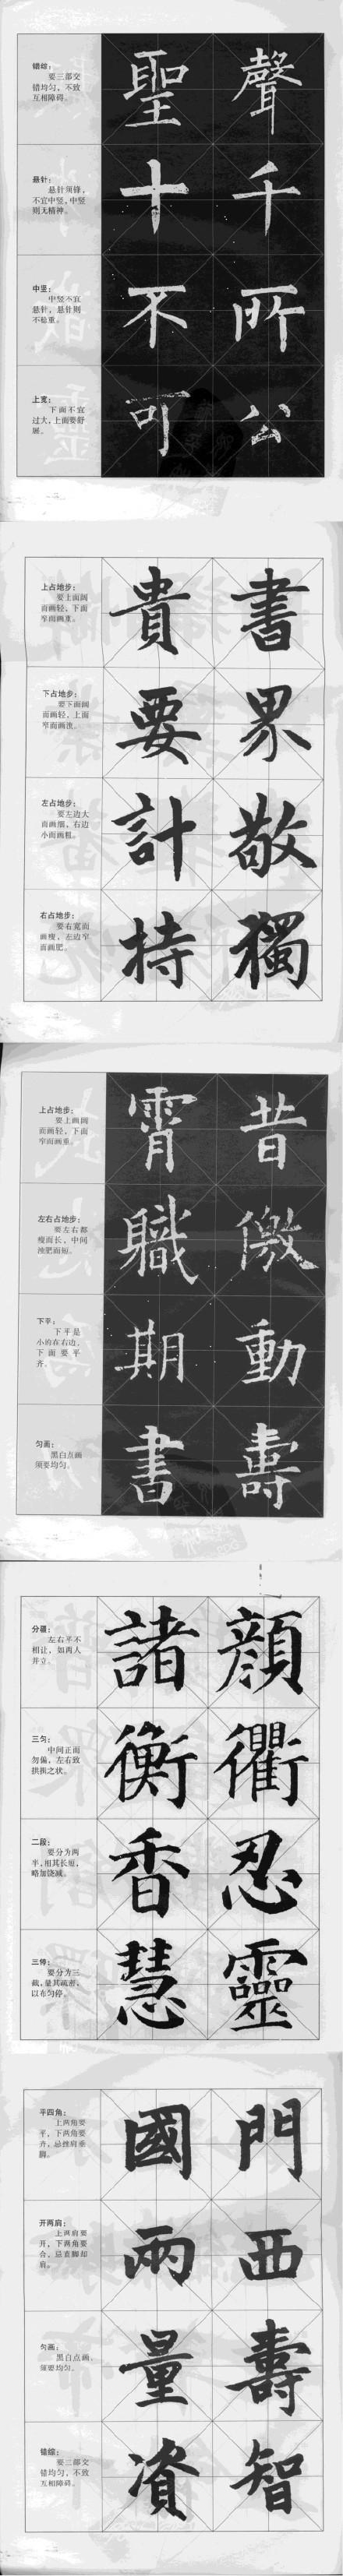 错综：
要三部交
错均匀，不致
互相障碍。
聖 聲
悬针：
悬针须锋，
不宜中竖，中竖
则无精神。
十 千
中竖：
中竖不宜
悬针，悬针则
不稳重。
不 所
上宽：
下面不宜
过大，上面要舒
展。
可 公
上占地步：
要上面阔
而画轻，下面
窄而画重。
貴 書
下占地步：
要下面阔
而画轻，上面
窄而画浊。
要 界
左占地步：
要左边大
而画细，右边
小而画粗。
計 敬
右占地步：
要右宽而
画瘦，左边窄
而画肥。
持 獨
上占地步：
要上面阔
而画轻，下面
窄而画重。
霄 昔
左右占地步：
要左右都
瘦而长，中间
浊肥而短。
職 傲
下平：
下平是
小的在右边，
下面要平
齐。
期 動
匀画：
黑白点画
须要均匀。
書 壽
分疆：
左右平不
相让，如两人
并立。
諸 顔
三匀：
中间正而
勿偏，左右致
拱揖之状。
衡 衢
二段：
要分为两
半，相其长短，
略加饶减。
香 忍
三停：
要分为三
截，量其疏密，
以布匀停。
慧 靈
平四角：
上两角要
平，下两角要
齐，忌挫肩垂
脚。
國 門
开两肩：
上两肩要
开，下两角要
合，忌直脚却
肩。
兩 西
匀画：
黑白点画，
须要均匀。
量 壽
错综：
要三部交
错均匀，不致
互相障碍。
資 智